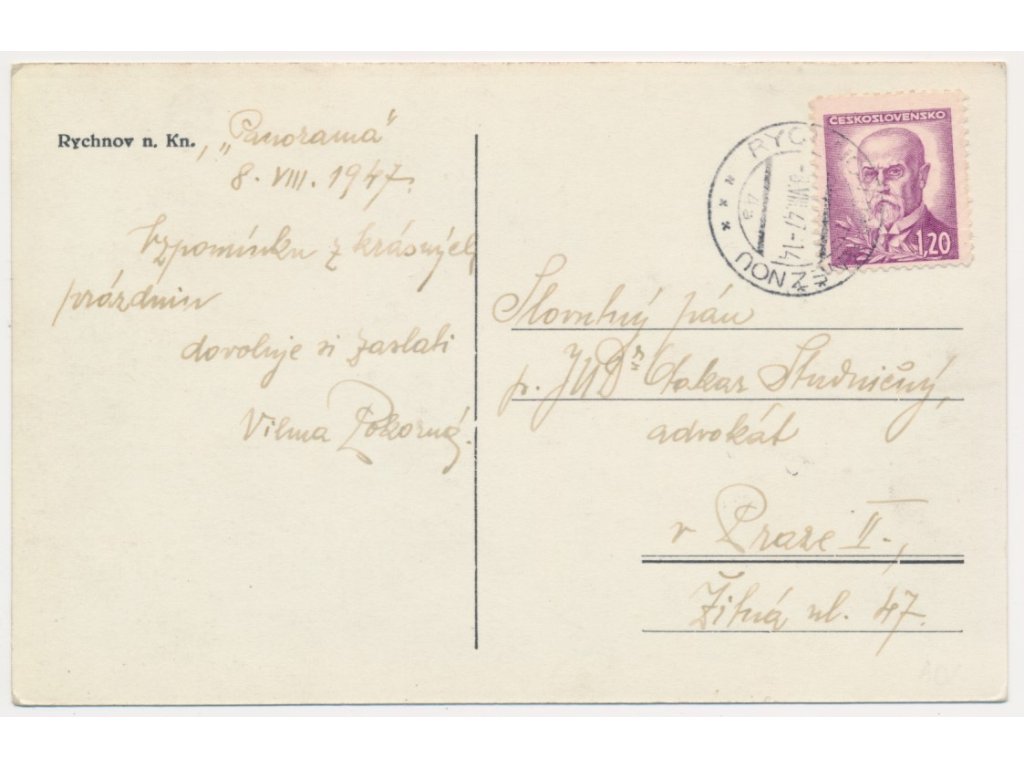 Rychnov n. Kn., „Panorama“
8. VIII. 1947.
Vzpomínku z krásných
prázdnin
dovoluje si zaslati
Vilma Pokorná.
ČESKOSLOVENSKO
1,20
RYCH
-8.VIII.47-14
NĚŽNOU
Slovutný pán
p. JUDr Otakar Studničný,
advokát
v Praze II.,
Žitná ul. 47.